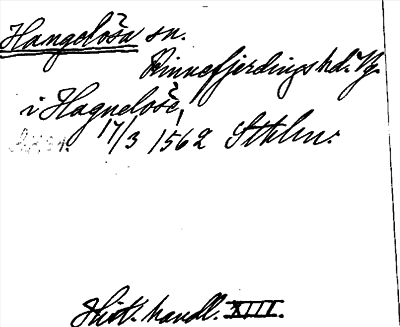 Hangelösa sn.
Kinnefjerdings hd. Vg.
i Hagnelöse,
17/3 1562 Sthlm.
Hist. handl. XIII.